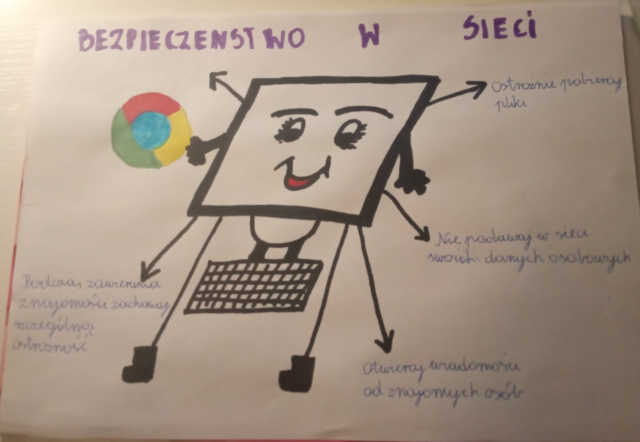 BEZPIECZEŃSTWO W SIECI
Ostrożnie pobieraj
pliki
Nie podawaj w sieci
swoich danych osobowych
Podczas zawierania
znajomości zachowaj
szczególną
ostrożność
Otwieraj wiadomości
od znajomych osób